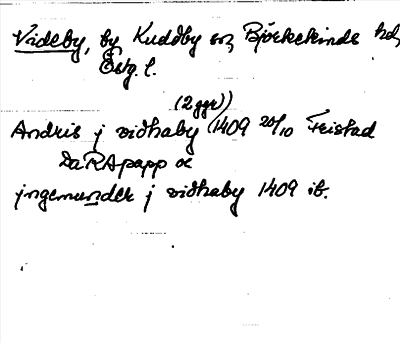 Videby, by Kuddby sn, Björkekinds hd,
Östg. l.
(2 ggr)
Andris j vidhaby 1409 20/10 Fristad
DaRA papp oc
jngemunder j vidhaby 1409 ib.